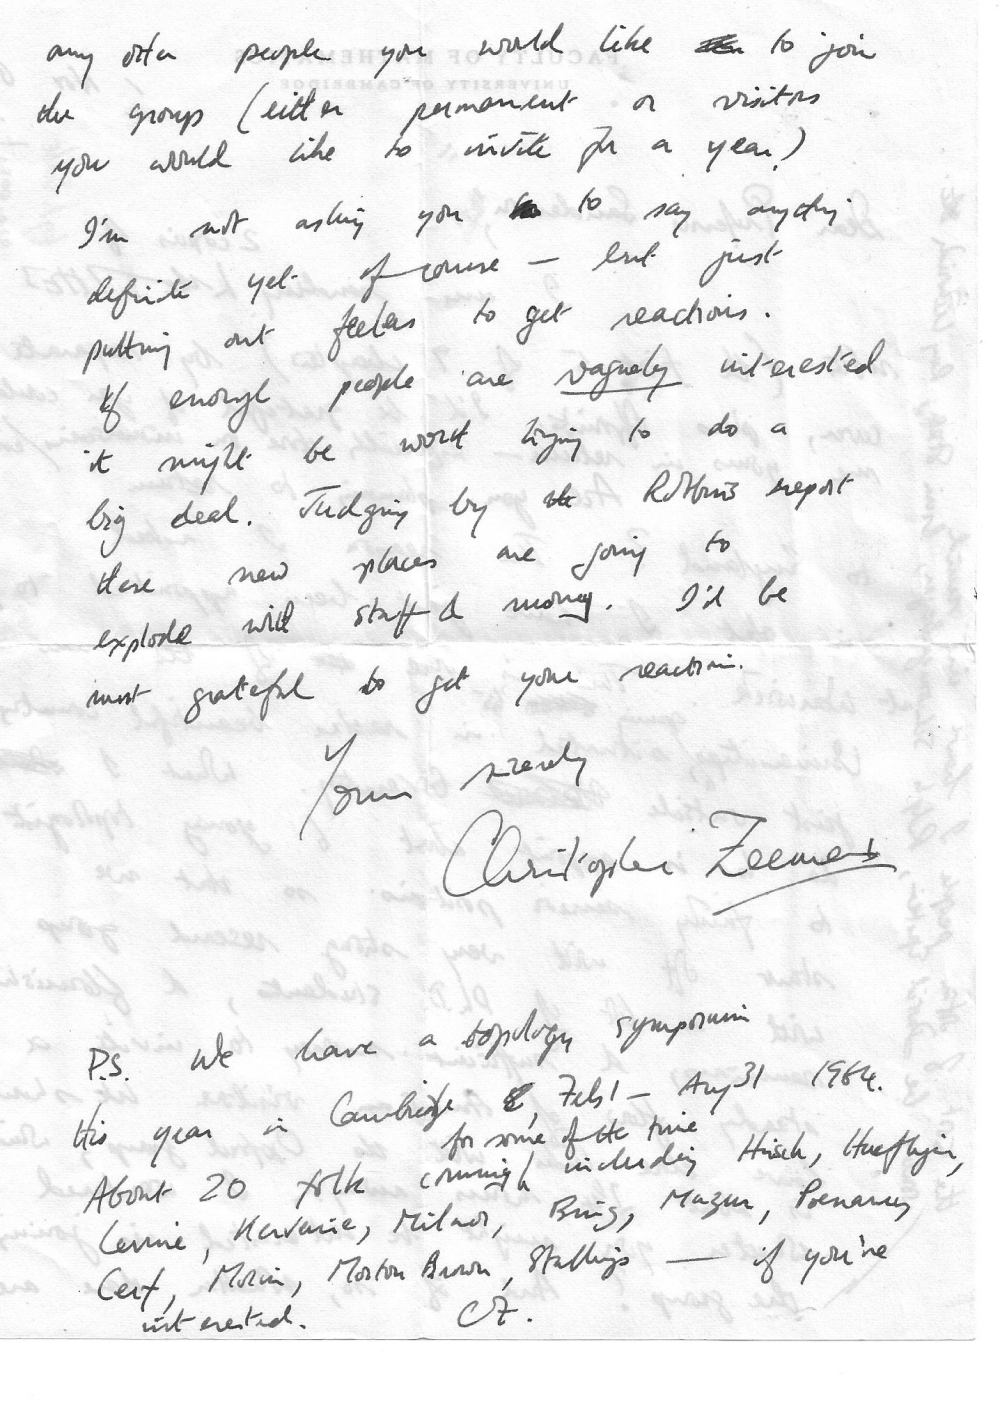 any other people you would like to join
the group (either permanent or visitors
you would like to invite for a year?)
I'm not asking you to say anything
definite yet of course — but just
putting out feelers to get reactions.
If enough people are vaguely interested
it might be worth trying to do a
big deal. Judging by the Robbins report
these new places are going to
explode with staff & money. I'd be
most grateful to get your reaction.
Yours sincerely
Christopher Zeeman
P.S. We have a topology symposium
this year in Cambridge, Feb 1 – Aug 31 1964.
for some of the time
About 20 folk coming including Hirsch, Haefliger,
Levine, Kervaire, Milnor, Bing, Mazur, Poenaru,
Cerf, Morin, Morton Brown, Stallings — if you're
interested. CZ.